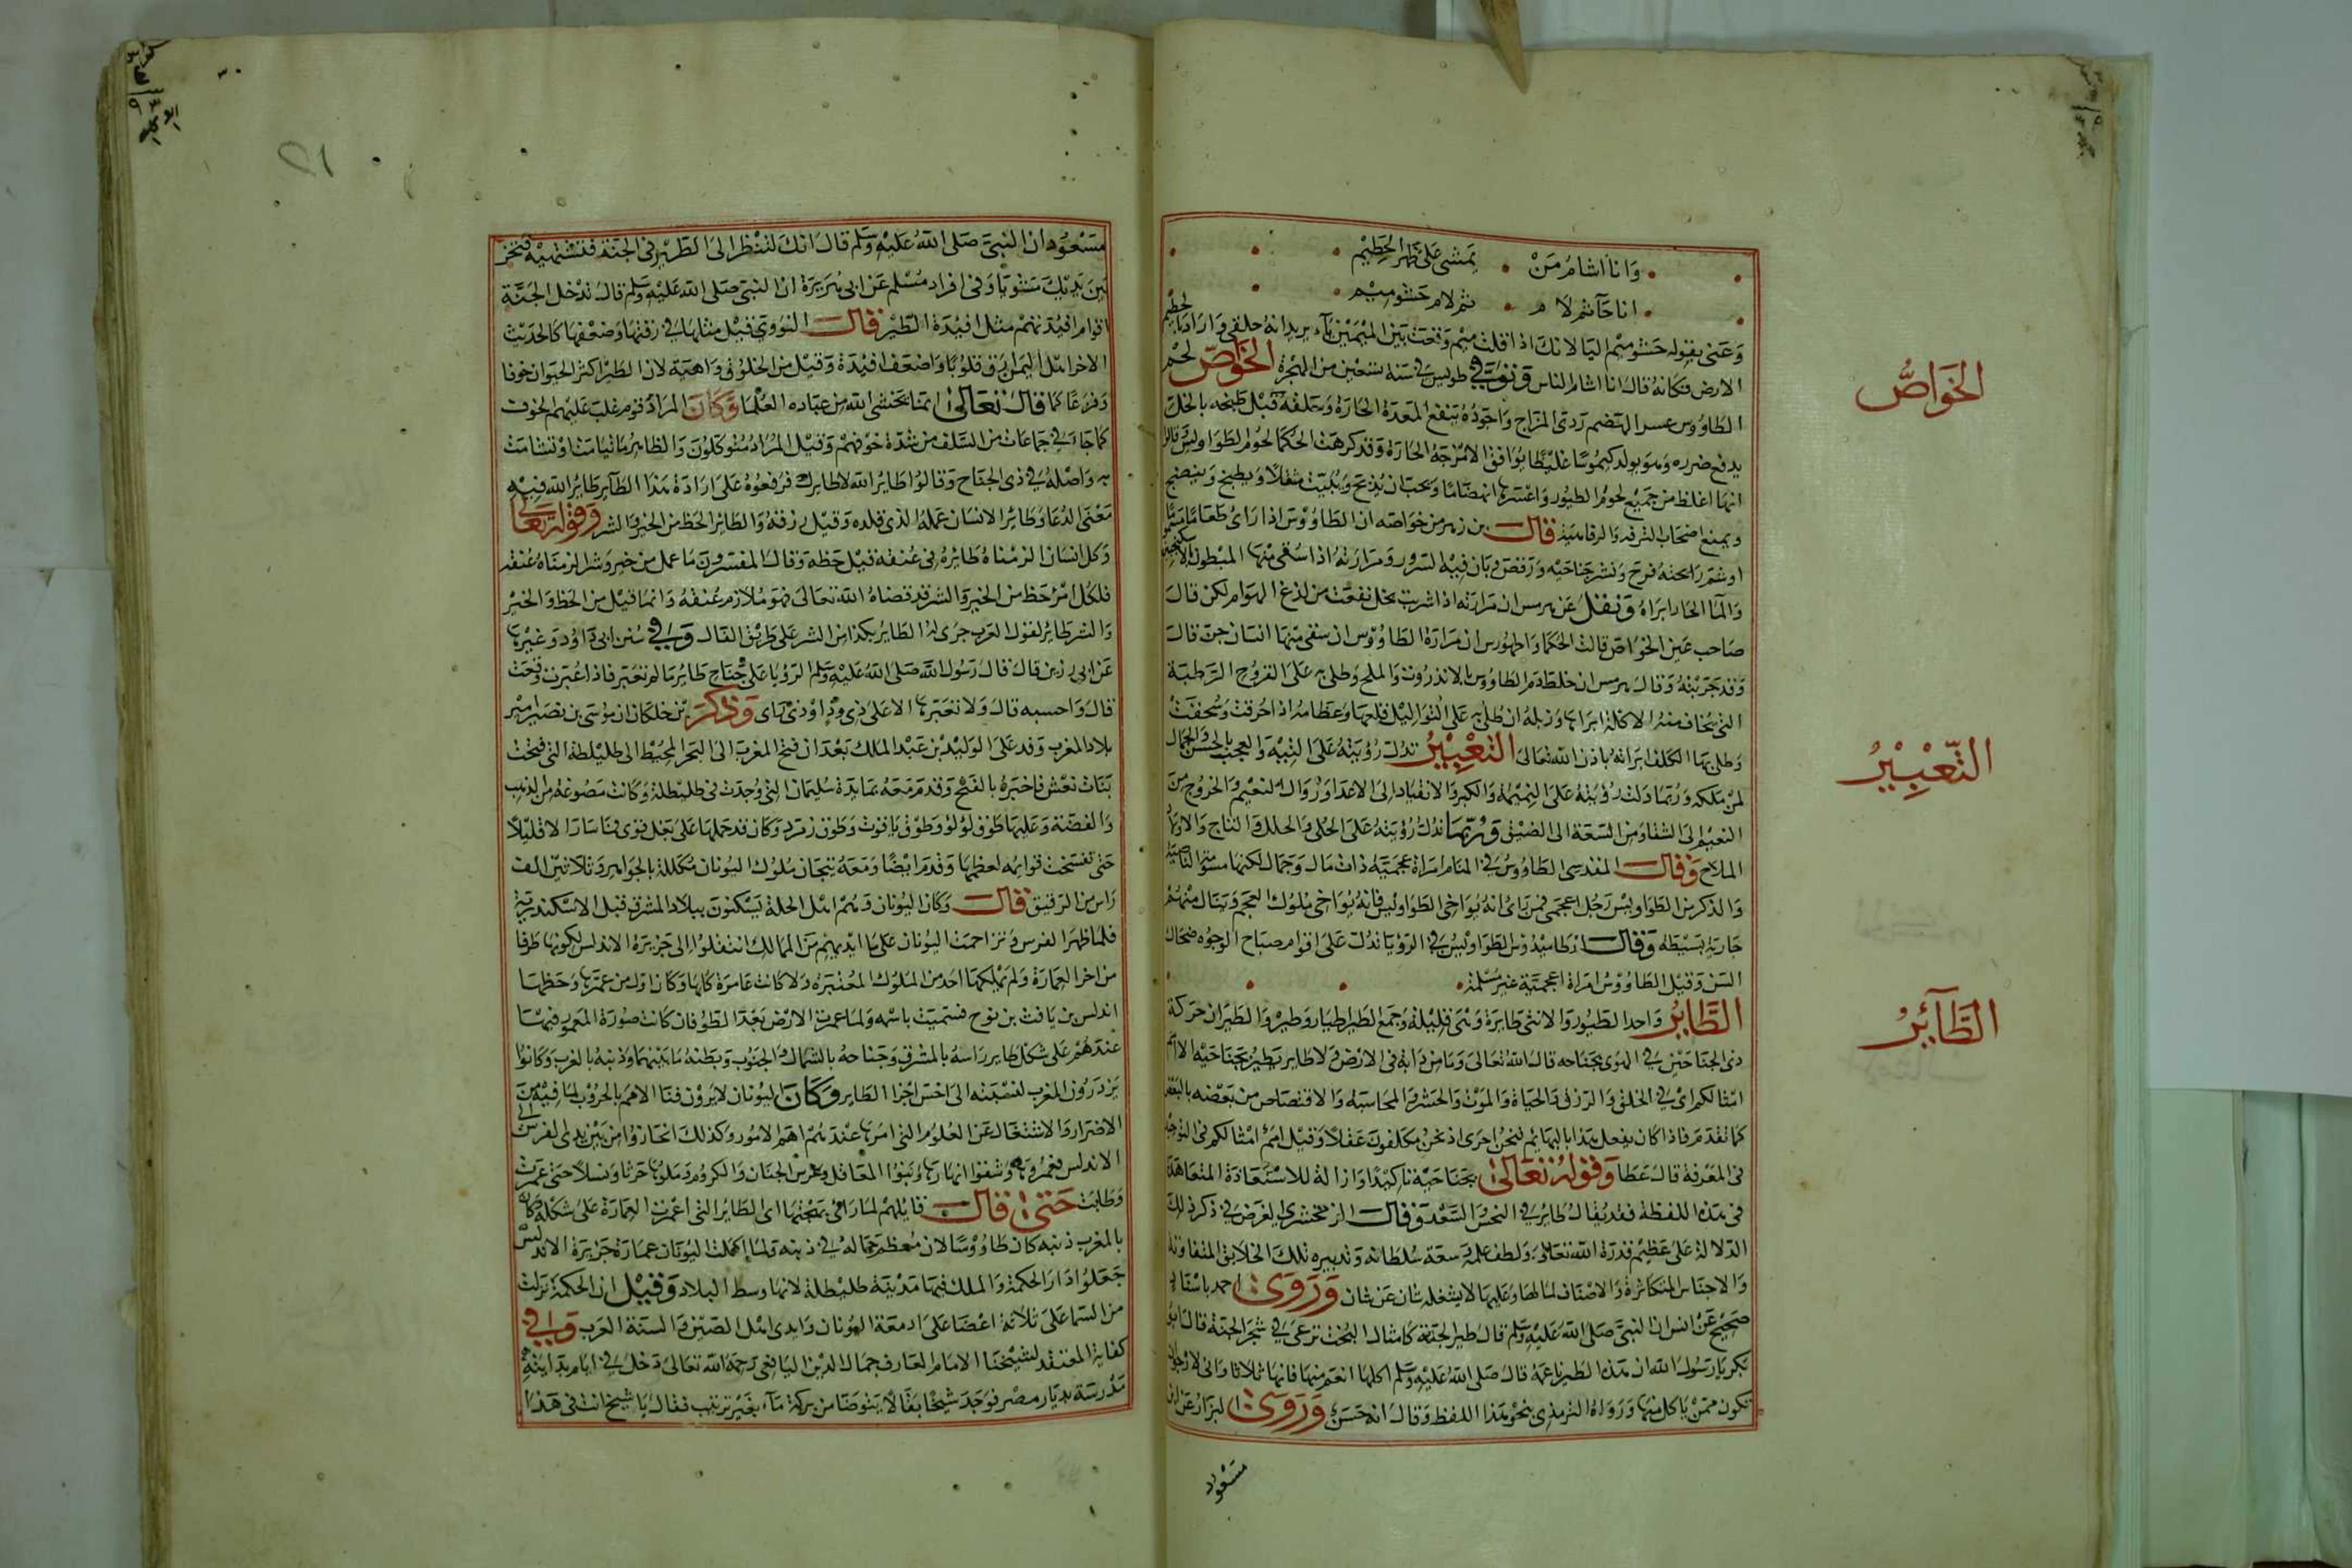 وانا اشام من • يمشي على ظهر الحطيم
انا حآثم لام • ثم لام حشو ميم
وعنى بقوله حشو ميم اليا لانك اذا قلت ميم وقعت بين الميمين يآء يريد انه حلقي واراد بالحطيم
الارض فكانه قال انا اشام الناس وتوفي طويس في سنة تسعين من الهجرة الخواص لحم
الطاووس عسر الهضم ردي المزاج واجوده ينفع المعدة الحارة وسلقه قبل طبخه بالخل
يدفع ضرره وهو يولد كيموسا غليظا يوافق الامزجة الحارة وقد كرهت الحكما لحوم الطواويس قالوا
انها اغلظ من جميع لحوم الطيور واعسرها انهضاما ويجب ان يذبح ويبيت مثقلا ويطبخ وينضج
ويمنع اصحاب الترفه والرفاهية قال بن زهر من خواصه ان الطاووس اذا راى طعاما مسموما
او شم رائحته فرح ونشر جناحيه ورقص وبان فيه السرور ومرارته اذا سقى منها المبطون بالسكنجبين
والما الحار ابراه ونقل عن هرمس ان مرارته اذا شربت بخل نفعت من لدغ الهوام لكن قال
صاحب عين الخواص قالت الحكما واطهورس ان مرارة الطاووس ان سقي منها انسان جن قال
وقد جربته وقال هرمس ان خلط دم الطاووس بالانذروت والملح وطلي به على القروح الرطبة
التي يخاف منها الاكلة ابراها وزبله ان طلي به على الثواليل قلعها وعظامه اذا احرقت وسحقت
وطلي بها الكلف ابراته باذن الله تعالى التعبير تدل رؤيته على التيه والعجب بالحسن والجمال
لمن ملكه وربما دلت رؤيته على النميمة والكبر والانقياد الى الاعدا وزوال النعيم والخروج من
النعيم الى الشقا ومن السعة الى الضيق وربما تدل رؤيته على الحلي والحلل والتاج والاولاد
الملاح وقال المقدسي الطاووس في المنام امراة عجمية ذات مال وجمال لكنها مشومة الناصية
والذكر من الطواويس رجل اعجمي فمن راى انه يواخي الطواويس فانه يواخي ملوك العجم وينال منهم
جارية بسيطه وقال ارطاميدوس الطواويس في الرؤيا تدل على اقوام صباح الوجوه ضحاك
السن وقيل الطاووس امراة اعجمية غير مسلمة
الطاير واحد الطيور والانثى طايرة وهي قليلة وجمع الطير اطيار وطيور والطيران حركة
ذي الجناحين في الهوى بجناحه قال الله تعالى وما من دابة في الارض ولا طاير يطير بجناحيه الا امم
امثالكم اي في الخلق والرزق والحياة والموت والحشر والمحاسبة والاقتصاص من بعضه بالبعض
كما تقدم فاذا كان يفعل هذا بالبهايم فنحن احرى اذ نحن مكلفون عقلا وقيل امم امثالكم في التوحيد
في المعرفة قال عطا وقوله تعالى بجناحيه تاكيدا وازالة للاستعادة المتعاهدة
في هذه اللفظة فقد يقال طاير في النحس والسعد وقال الزمخشري الغرض في ذكر ذلك
الدلالة على عظيم قدرة الله تعالى ولطف علمه وسعة سلطانه وتدبيره تلك الخلايق المتفاوتة
والاجناس المتكاثرة والاصناف لما لها وعليها لا يشغله شان عن شان وروى احمد باسناد
صحيح عن انس ان النبي صلى الله عليه وسلم قال طير الجنة كامثال البخت ترعى في شجر الجنة قال ابو
بكر يا رسول الله ان هذه الطير ناعمة قال صلى الله عليه وسلم اكلها انعم منها قالها ثلاثا واني لارجو ان
تكون ممن ياكل منها ورواه الترمذي بنحو هذا اللفظ وقال انه حسن وروى البزار عن ابن
مسعود
الخواص
التعبير
الطآئر
مسعود ان النبي صلى الله عليه وسلم قال انك لتنظر الى الطير في الجنة فتشتهيه فيخر
بين يديك مشويا وفي افراد مسلم عن ابي هريرة ان النبي صلى الله عليه وسلم قال يدخل الجنة
اقوام افيدتهم مثل افيدة الطير قال النووي قيل مثلها في رقتها وضعفها كالحديث
الاخر اهل اليمن ارق قلوبا واضعف افيدة وقيل من الخلوف وهيبة لان الطير اكثر الحيوان خوفا
وفزعا كما قال تعالى انما يخشى الله من عباده العلما وكان المراد قوم غلب عليهم الخوف
كما جآء في جماعات من السلف من شدة خوفهم وقيل المراد متوكلون والطاير ما تيامنت او تشامت
به واصله في ذي الجناح وقالوا طاير الله لا طايرك فرفعوه على ارادة هذا الطآير طاير الله فيه
معنى الدعا وطاير الانسان عمله الذي قلده وقيل رزقه والطاير الحظ من الخير والشر وقوله تعالى
وكل انسان الزمناه طايره في عنقه قيل حظه وقال المفسرون ما عمل من خير وشر الزمناه عنقه
فلكل امر حظ من الخير والشر قد قضاه الله تعالى فهو ملازم عنقه وانما قيل من الحظ والخير
والشر طاير لقول العرب جرى له الطاير بكذا من الشر على طريق الفال وفي سنن ابي داود وغيرها
عن ابي رزين قال قال رسول الله صلى الله عليه وسلم الرؤيا على جناح طاير ما لم تعبر فاذا عبرت وقعت
قال واحسبه قال ولا تعبرها الا على ذي ود او ذي راى وذكر بن خلكان ان موسى بن نصير امير
بلاد المغرب وفد على الوليد بن عبد الملك بعد ان فتح المغرب الى البحر المحيط الى طليطلة التي فتحت
بنات نعش فاخبره بالفتح وقدم معه بمايدة سليمان التي وجدت في طليطلة وكانت مصوغة من الذهب
والفضة وعليها طوق لؤلؤ وطوق ياقوت وطوق زمرد وكان قد حملها على بغل قوي فما سار الا قليلا
حتى تفسخت قوايمه لعظمها وقدم ايضا ومعه تيجان ملوك اليونان مكللة بالجواهر وثلاثين الف
راس من الرقيق قال وكان اليونان وهم اهل الحلة يسكنون ببلاد المشرق قبل الاسكندرية
فلما ظهر الفرس وزاحمت اليونان على ما ايديهم من الممالك انتقلوا الى جزيرة الاندلس لكونها طرفا
من اخر العمارة ولم يملكها احد من الملوك المعتبرة ولا كانت عامرة كلها وكان اول من عمرها وخطها
اندلس بن يافث بن نوح فسميت باسمه ولما عمرت الارض بعد الطوفان كانت صورة المعمور فيها
عندهم على شكل طاير راسه بالمشرق وجناحه بالشمال والجنوب وبطنه ما بينهما وذنبه بالغرب وكانوا
يزدرون المغرب لنسبته الى اخس اجزا الطاير وكان اليونان لا يرون فنا الامم بالحروب لما فيه من
الاضرار والاشتغال عن العلوم التي امرها عندهم اهم الامور وكذلك انحازوا من بين يدي الفرس الى
الاندلس فعمروها وشقوا انهارها وبنوا المعاقل وغرس الجنان والكروم وملوها حرثا ونسلا حتى عمرت
وطابت حتى قال قايلهم لما راى بهجتها اى الطاير التي اعمرت العمارة على شكله وكان
بالمغرب ذنبه كان طاووسا لان معظم جماله في ذنبه ولما اكملت اليونان عمارة جزيرة الاندلس
جعلوا دار الحكمة والملك فيها مدينة طليطلة لانها وسط البلاد وقيل ان الحكمة نزلت
من السما على ثلاثة اعضا على ادمغة اليونان وايدي اهل الصين والسنة العرب وفي
كفاية المعتقد لشيخنا الامام العارف جمال الدين اليافعي رحمه الله تعالى دخل في ايام بدايته
مدرسة بديار مصر فوجد شيخا بقالا يتوضا من بركة مآء بغير ترتيب فقال يا شيخ انت في هذا